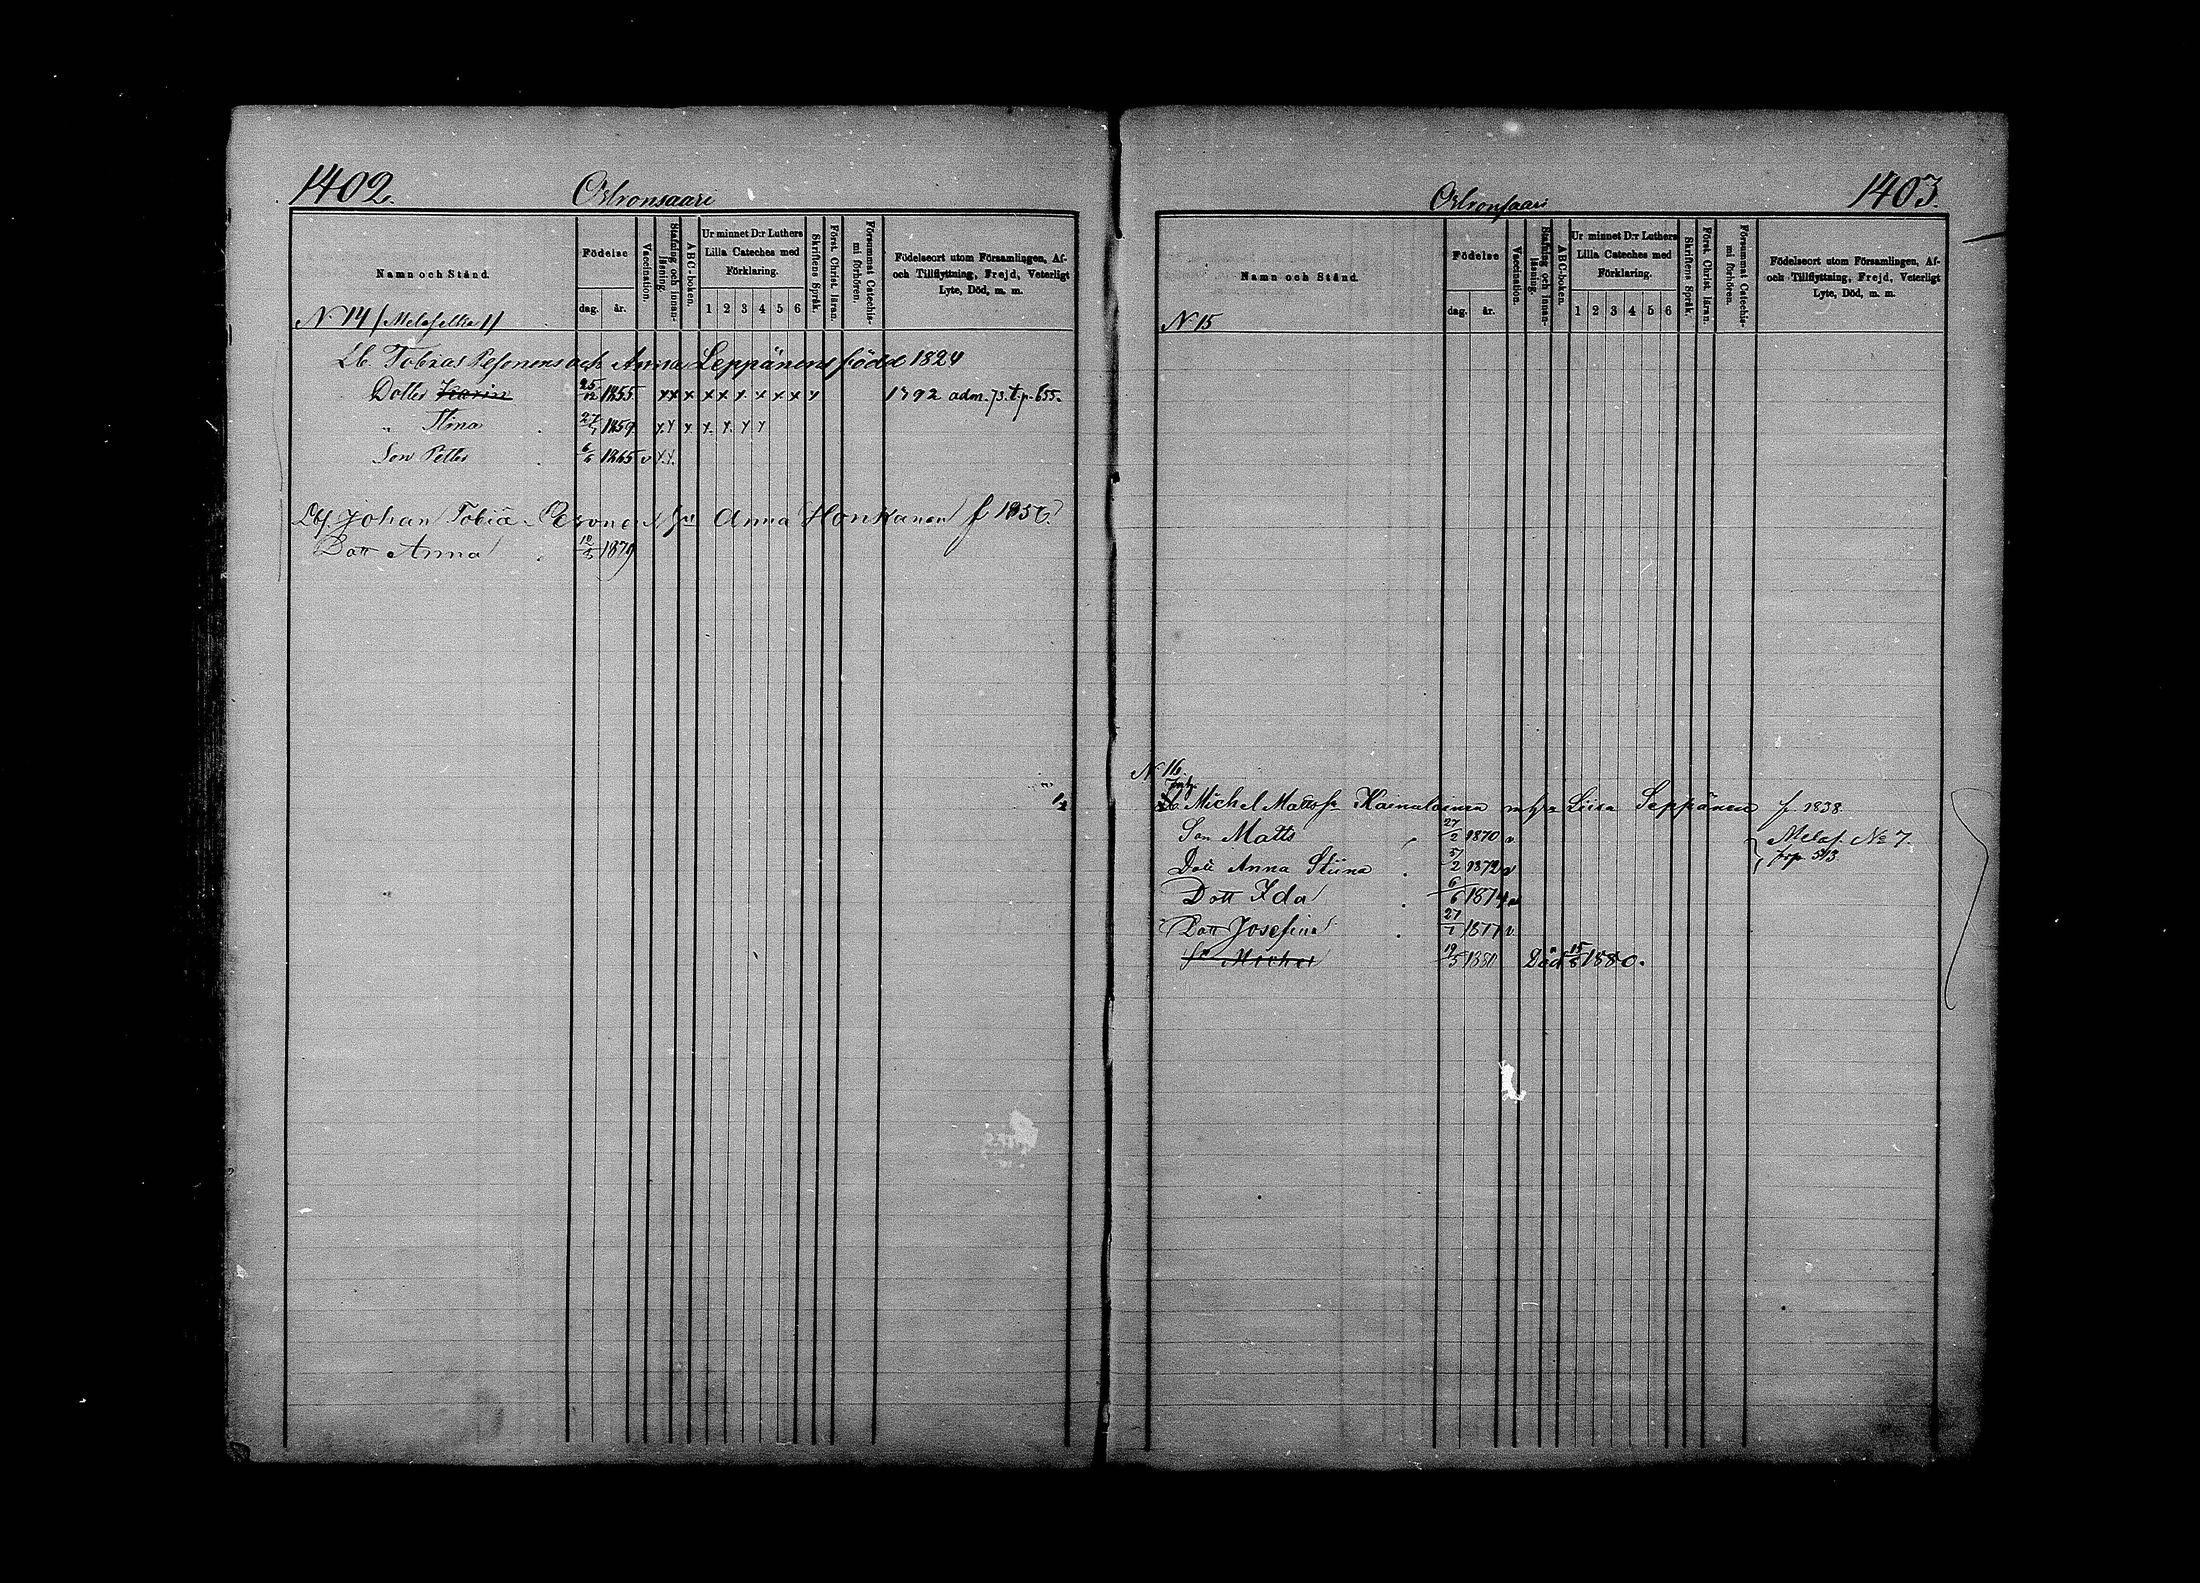 1402.
Ostronsaari
Namn och Stånd.
Födelse
dag. år.
Vaccination.
Stafning och innan-läsning.
ABC-boken.
Ur minnet D:r Luthers
Lilla Cateches med
Förklaring.
1 2 3 4 5 6
Skriftens Språk.
Först. Christ. läran.
Försummat Catechis-mi förhören.
Födelseort utom Församlingen, Af-
och Tillflyttning, Frejd, Veterligt
Lyte, Död, m. m.
N 14 / Melaselka 1/
Lb. Tobias Pesonens och Anna Leppänens född 1824
Dotter Karin 25/12 1855 x x x x x x x x x x 1792 adm. 73. t. p. 655.
" Stina 1859 x x x x x x x
Son Petter 6/6 1865 v x x
Johan Tobia Pesonen Anna Honkanen f 1856
Dott Anna 1879
1403.
Ostronsaari
Namn och Stånd.
Födelse
dag. år.
Vaccination.
Stafning och innan-läsning.
ABC-boken.
Ur minnet D:r Luthers
Lilla Cateches med
Förklaring.
1 2 3 4 5 6
Skriftens Språk.
Först. Christ. läran.
Försummat Catechis-mi förhören.
Födelseort utom Församlingen, Af-
och Tillflyttning, Frejd, Veterligt
Lyte, Död, m. m.
N 15
N 16.
Inh.
Michel Mattss. Kainulainen Liisa Seppänen f 1838
Son Matts 27/2 1870 v Melas. No 7.
Dott Anna Stiina 5/2 1872 v p 513
Dott Ida 6/6 1874 v
Dott Josefina 27/1 1877 v
Sn Michel 19/5 1880 Död 15/8 1880.